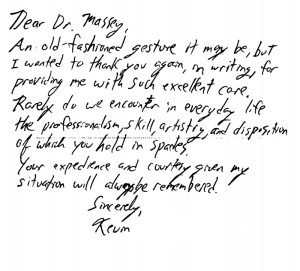 Dear Dr. Massey,
An old-fashioned gesture it may be, but
I wanted to thank you again, in writing, for
providing me with such excellent care.
Rarely do we encounter in everyday life
the professionalism, skill, artistry, and disposition
of which you hold in spades.
Your expedience and courtesy given my
situation will always be remembered.
Sincerely,
Kevin